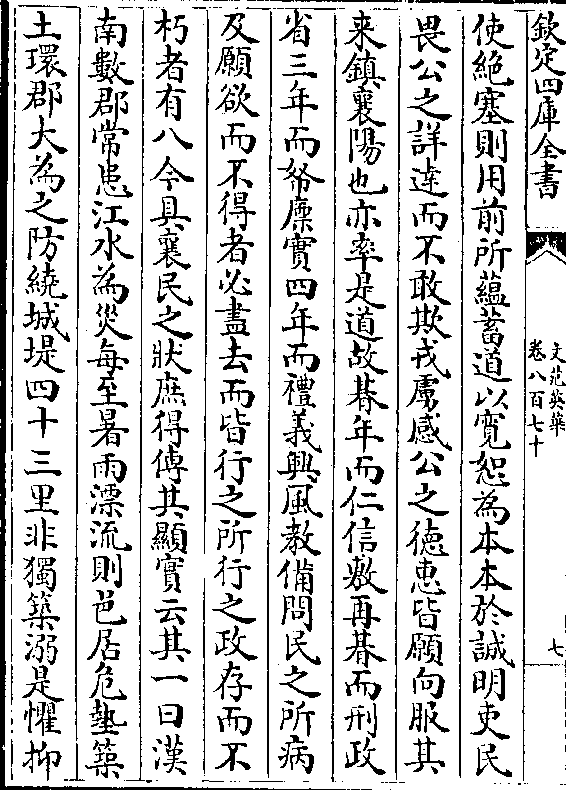 欽定四庫全書
文苑英華
卷八百七十
七
使絶塞則用前所蘊蓄道以寛恕為本本於誠明吏民
畏公之詳達而不敢欺戎虜感公之徳惠皆願向服其
来鎮襄陽也亦率是道故朞年而仁信敷再朞而刑政
省三年而帑廩實四年而禮義興風教備問民之所病
及願欲而不得者必盡去而皆行之所行之政存而不
朽者有八今具襄民之狀庶得傳其顯實云其一曰漢
南數郡常患江水為災每至暑雨漂流則邑居危墊築
土環郡大為之防繞城堤四十三里非獨築溺是懼抑